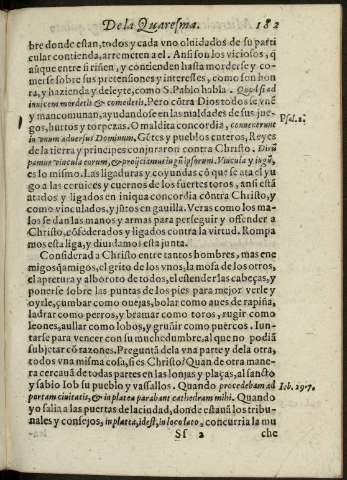 De la Quaresma. 182
bre donde estan, todos y cada vno oluidados de su parti
cular contienda, arremeten a el. Ansi son los viciosos, q̃
aũque entre si riñen, y contienden hasta morderse y co-
merse sobre sus pretensiones y interesses, como son hon
ra, y hazienda y deleyte, como S. Pablo habla. Quòd si ad
inuicem mordetis & comedetis. Pero cõtra Dios todos se vnẽ
y mancomunan, ayudandose en las maldades de sus jue-
gos, hurtos y torpezas. O maldita concordia, conuenerunt
in vnum aduersus Dominum. Gẽtes y pueblos enteros, Reyes
de la tierra y principes conjuraron contra Christo.
Psal. 2.
es lo mismo. Las ligaduras y coyundas cõ que se ata el yu
go a las ceruices y cuernos de los fuertes toros, ansi està
atados y ligados en iniqua concordia cõtra Christo, y
como vinculados, y jũtos en gauilla. Veras como los ma-
los se dan las manos y armas para perseguir y offender a
Christo, cõfederados y ligados contra la virtud. Rompa
mos esta liga, y diuidamos esta junta.
Considerad a Christo entre tantos hombres, mas ene
migos q̃ amigos, el grito de los vnos, la mofa de los otros,
el apretura y alboroto de todos, el estender las cabeças, y
ponerse sobre las puntas de los pies para mejor verle y
oyrle, çumbar como ouejas, bolar como aues de rapiña,
ladrar como perros, y bramar como toros, rugir como
leones, aullar como lobos, y gruñir como puercos. Iun-
tarse para vencer con su muchedumbre, al que no podiã
subjetar cõ razones. Preguntã dela vna parte y dela otra,
todos vna misma cosa, si es Christo? Quan de otra mane-
ra cercauã de todas partes en las lonjas y plaças, al sancto
y sabio Iob su pueblo y vassallos. Quando procedebam ad
portam ciuitatis, & in platea parabant cathedram mihi. Quando
Iob. 29.7.
yo salia a las puertas de la ciudad, donde estauã los tribu-
nales y consejos, in platea, idest, in loco lato, concurria la mu
Sſ 2 che